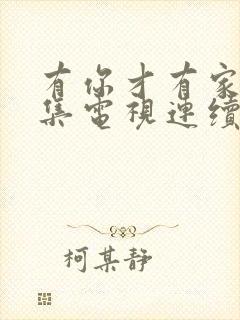 有你才有家
集電視連續
柯某靜